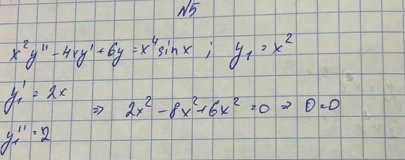 №5
x²y'' - 4xy' + 6y = x⁴ sin x ; y₁ = x²
y₁' = 2x
⇒ 2x² - 8x² + 6x² = 0 ⇒ 0 = 0
y₁'' = 2